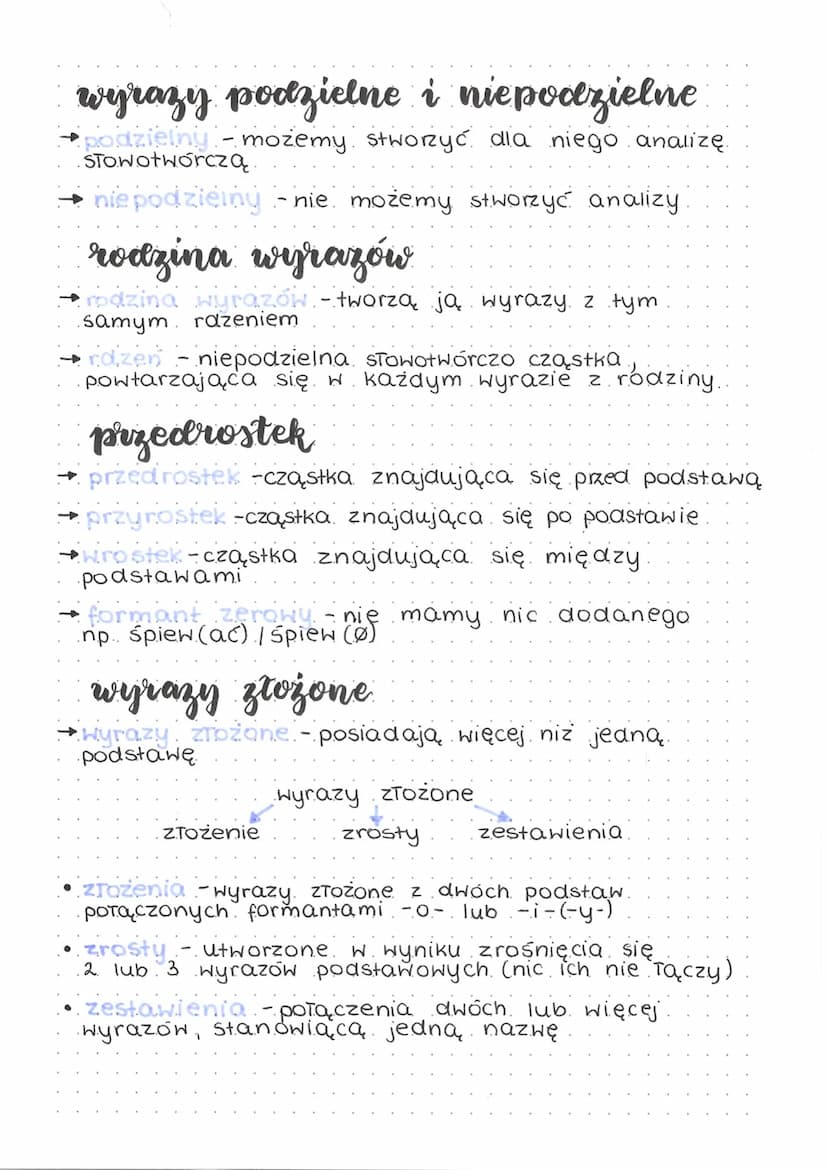 wyrazy podzielne i niepodzielne
→ podzielny - możemy stworzyć dla niego analizę
słowotwórczą
→ niepodzielny - nie możemy stworzyć analizy
rodzina wyrazów
→ rodzina wyrazów - tworzą ją wyrazy z tym
samym rdzeniem
→ rdzeń - niepodzielna słowotwórczo cząstka,
powtarzająca się w każdym wyrazie z rodziny
przedrostek
→ przedrostek - cząstka znajdująca się przed podstawą
→ przyrostek - cząstka znajdująca się po podstawie
→ wrostek - cząstka znajdująca się między
podstawami
→ formant zerowy - nie mamy nic dodanego
np. śpiew(ać) / śpiew (Ø)
wyrazy złożone
→ wyrazy złożone - posiadają więcej niż jedną
podstawę
wyrazy złożone
złożenie zrosty zestawienia
• złożenia - wyrazy złożone z dwóch podstaw
połączonych formantami -o- lub -i-(-y-)
• zrosty - utworzone w wyniku zrośnięcia się
2 lub 3 wyrazów podstawowych (nic ich nie łączy)
• zestawienia - połączenia dwóch lub więcej
wyrazów, stanowiącą jedną nazwę